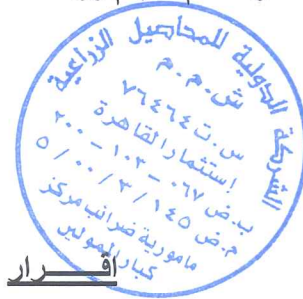 الشركة الدولية للمحاصيل الزراعية
ش.م.م
س.ت ٧٦٤٦٤
إستثمار القاهرة
ب.ض ٠٦٧ - ١٠٣ - ٢٠٠
م.ض ١٤٥ / ٣ / ٠٠ / ٥
مامورية ضرائب مركز
كبار الممولين
اقـــرار